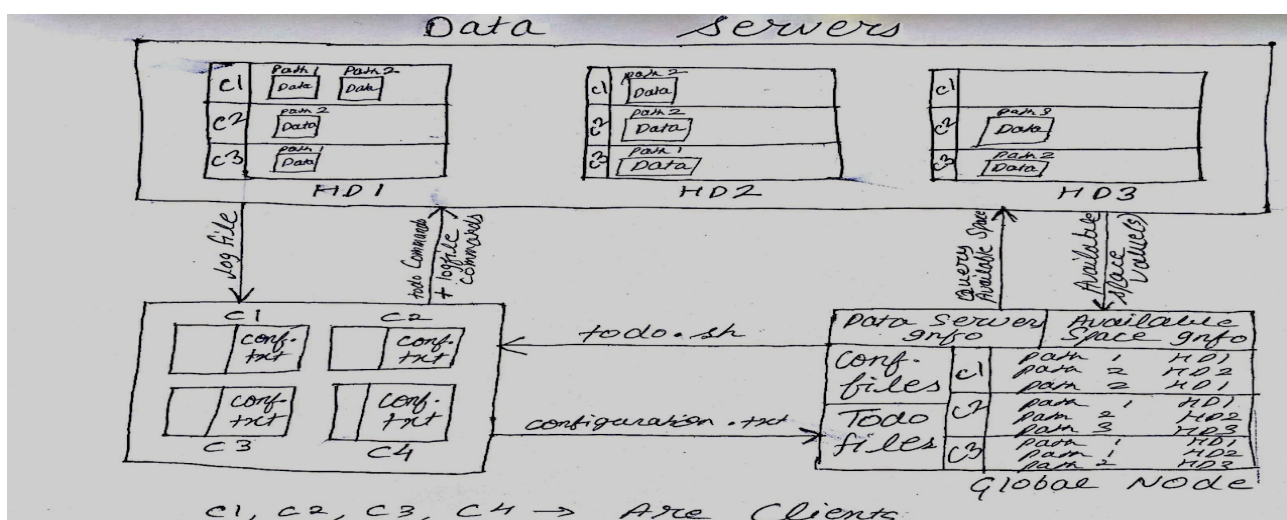 Data Servers
C1 Path 1 Data Path 2 Data
C2 path 2 Data
C3 path 1 Data
HD1
C1 path 2 Data
C2 path 2 Data
C3 path 1 Data
HD2
C1
C2 path 3 Data
C3 path 2 Data
HD3
log file
todo Commands
+ logfile
commands
Query
Available Space
Available
Space
Value(s)
C1 C2
conf.
txt
conf.
txt
conf.
txt
conf.
txt
C3 C4
todo.sh
configuration.txt
Data Server
Info
Available
Space Info
Conf.
files
Todo
files
C1 path 1 HD1
path 2 HD2
path 2 HD1
C2 path 1 HD1
path 2 HD2
path 3 HD3
C3 path 1 HD1
path 1 HD2
path 2 HD3
Global Node
C1, C2, C3, C4 → Are Clients